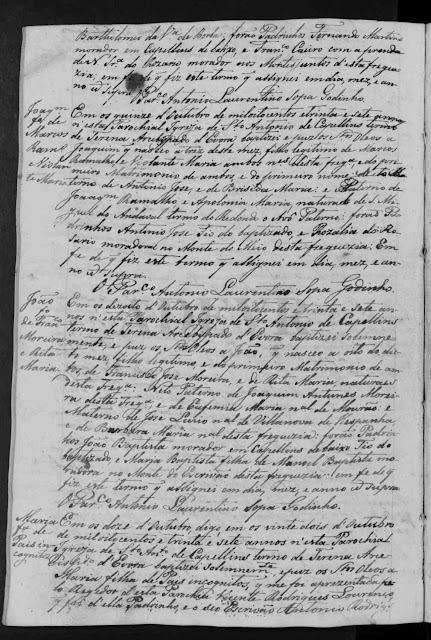 Bartholomeo da Roza: forão Padrinhos Fernando Martins
morador em Capellens de baxo, e Franca Caeiro com a prenda
de N. Sra do Rozario morador nos Montejuntos desta fregue
zia, em fe de q fiz este termo q assignei em dia, mez, e an
no ut supra
O Parco Antonio Laurentino Sopa Godinho
Joaqm
fo de
Marcos
Ramo
e Violan
te Maria
Em os quinze d'Outubro de miloitocentos etrinta e sete annos
n'esta Parochial Igreza de Sto Antonio de Capellens termo
de Terena Arcebispado d'Evora baptizei e puz os Stos Oleos a
Joaquim q nasceo a do mez, filho legitimo de Marcos
Ramalho, e Violante Maria ambos nes desta frega e do pri
meiro Matrimonio de ambos, e do primeiro nome
termo de Antonio Jose, e de Bris Maria: e Paterno de
Joaqm Ramalho e Apolonia Maria naturaes de S. Mi
guel do Andaval termo do Redondo o Avô Paterno: forão Pa
drinhos Antonio Jose Tio do baptizado, e Rozalia do Ro
sario moradora no Monte do Meio desta freguezia: Em
fe de q fiz este termo q assignei em dia, mez, e an
no ut supra.
O Parco Antonio Laurentino Sopa Godinho
João
fo
de Franco
Moreira
e Rita
Maria
Em os dezoito d'Outubro de miloitocentos etrinta e Sete an
nos n'esta Parochial Igreza de Sto Antonio de Capellins
termo de Terena Arcebispado d'Evora baptizei Solemne
mente, e puz os Stos Oleos a João, q nasceo a oito do di
to mez filho legitimo, e do primeiro Matrimonio de am
bos, de Francisco Jose Moreira, e de Rita Maria naturaes
desta frega: Neto Paterno de Joaquim Antunes Morei
ra desta Frega, e de Eufemia Maria nal de Mourão: e
Materno de Jose Livio nal de Villanova de Hespanha,
e de Barbara Maria nal desta freguezia: forão Padri
nhos João Baptista morador em Capellens de baixo Tio do
baptizado e Maria Baptista filha de Manoel Baptista mo
radora no Monte do Escrivão desta freguezia: em fe de q
fiz este termo q assignei em dia, mez, e anno ut supra
O Parco Antonio Laurentino Sopa Godinho.
Maria
fa de
Pais in
cognitos
Em os doze d'Outubro, digo em os vinte dois d'Outubro
de miloitocentos e trinta e sete annos n'esta Parochial
Igreza de Sto Anto de Capellins termo de Terena Arce
bispdo d'Evora baptizei Solemnemte, e puz os Stos Oleos a
Maria filha de Pais incognitos, q me foi aprezentada pe
lo Regedor d'esta Parochia Vicente Rodrigues Lourenço,
q foi d'ella Padrinho, e o seo Escrivão Antonio Rodrigs